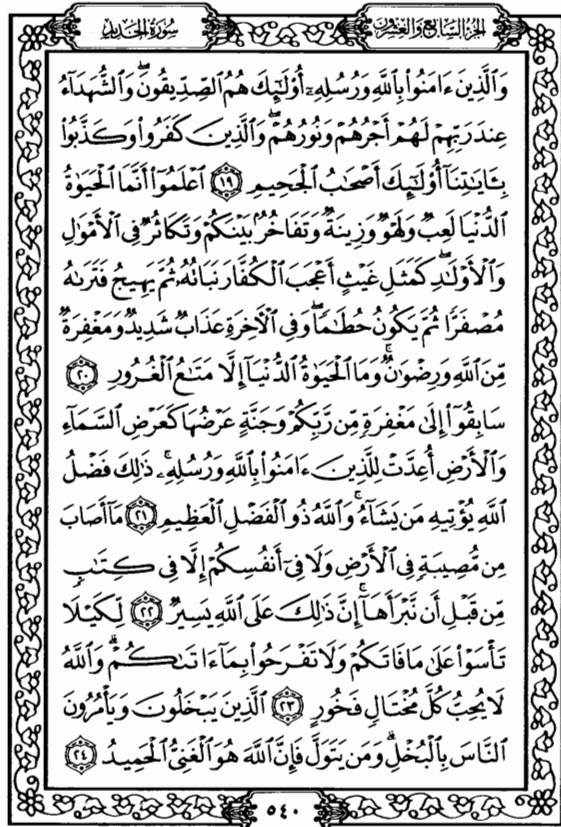 سُورَةُ الحَدِيدِ
الجُزءُ السَّابِعُ وَالعِشرُونَ
وَٱلَّذِينَ ءَامَنُوا۟ بِٱللَّهِ وَرُسُلِهِۦٓ أُو۟لَٰٓئِكَ هُمُ ٱلصِّدِّيقُونَۖ وَٱلشُّهَدَآءُ
عِندَ رَبِّهِمْ لَهُمْ أَجْرُهُمْ وَنُورُهُمْۖ وَٱلَّذِينَ كَفَرُوا۟ وَكَذَّبُوا۟
بِـَٔايَٰتِنَآ أُو۟لَٰٓئِكَ أَصْحَٰبُ ٱلْجَحِيمِ ١٩ ٱعْلَمُوٓا۟ أَنَّمَا ٱلْحَيَوٰةُ
ٱلدُّنْيَا لَعِبٌ وَلَهْوٌ وَزِينَةٌ وَتَفَاخُرٌۢ بَيْنَكُمْ وَتَكَاثُرٌ فِى ٱلْأَمْوَٰلِ
وَٱلْأَوْلَٰدِۖ كَمَثَلِ غَيْثٍ أَعْجَبَ ٱلْكُفَّارَ نَبَاتُهُۥ ثُمَّ يَهِيجُ فَتَرَىٰهُ
مُصْفَرًّا ثُمَّ يَكُونُ حُطَٰمًاۖ وَفِى ٱلْـَٔاخِرَةِ عَذَابٌ شَدِيدٌ وَمَغْفِرَةٌ
مِّنَ ٱللَّهِ وَرِضْوَٰنٌۚ وَمَا ٱلْحَيَوٰةُ ٱلدُّنْيَآ إِلَّا مَتَٰعُ ٱلْغُرُورِ ٢٠
سَابِقُوٓا۟ إِلَىٰ مَغْفِرَةٍ مِّن رَّبِّكُمْ وَجَنَّةٍ عَرْضُهَا كَعَرْضِ ٱلسَّمَآءِ
وَٱلْأَرْضِ أُعِدَّتْ لِلَّذِينَ ءَامَنُوا۟ بِٱللَّهِ وَرُسُلِهِۦۚ ذَٰلِكَ فَضْلُ
ٱللَّهِ يُؤْتِيهِ مَن يَشَآءُۚ وَٱللَّهُ ذُو ٱلْفَضْلِ ٱلْعَظِيمِ ٢١ مَآ أَصَابَ
مِن مُّصِيبَةٍ فِى ٱلْأَرْضِ وَلَا فِىٓ أَنفُسِكُمْ إِلَّا فِى كِتَٰبٍ
مِّن قَبْلِ أَن نَّبْرَأَهَآۚ إِنَّ ذَٰلِكَ عَلَى ٱللَّهِ يَسِيرٌ ٢٢ لِّكَيْلَا
تَأْسَوْا۟ عَلَىٰ مَا فَاتَكُمْ وَلَا تَفْرَحُوا۟ بِمَآ ءَاتَىٰكُمْۗ وَٱللَّهُ
لَا يُحِبُّ كُلَّ مُخْتَالٍ فَخُورٍ ٢٣ ٱلَّذِينَ يَبْخَلُونَ وَيَأْمُرُونَ
ٱلنَّاسَ بِٱلْبُخْلِۗ وَمَن يَتَوَلَّ فَإِنَّ ٱللَّهَ هُوَ ٱلْغَنِىُّ ٱلْحَمِيدُ ٢٤
٥٤٠